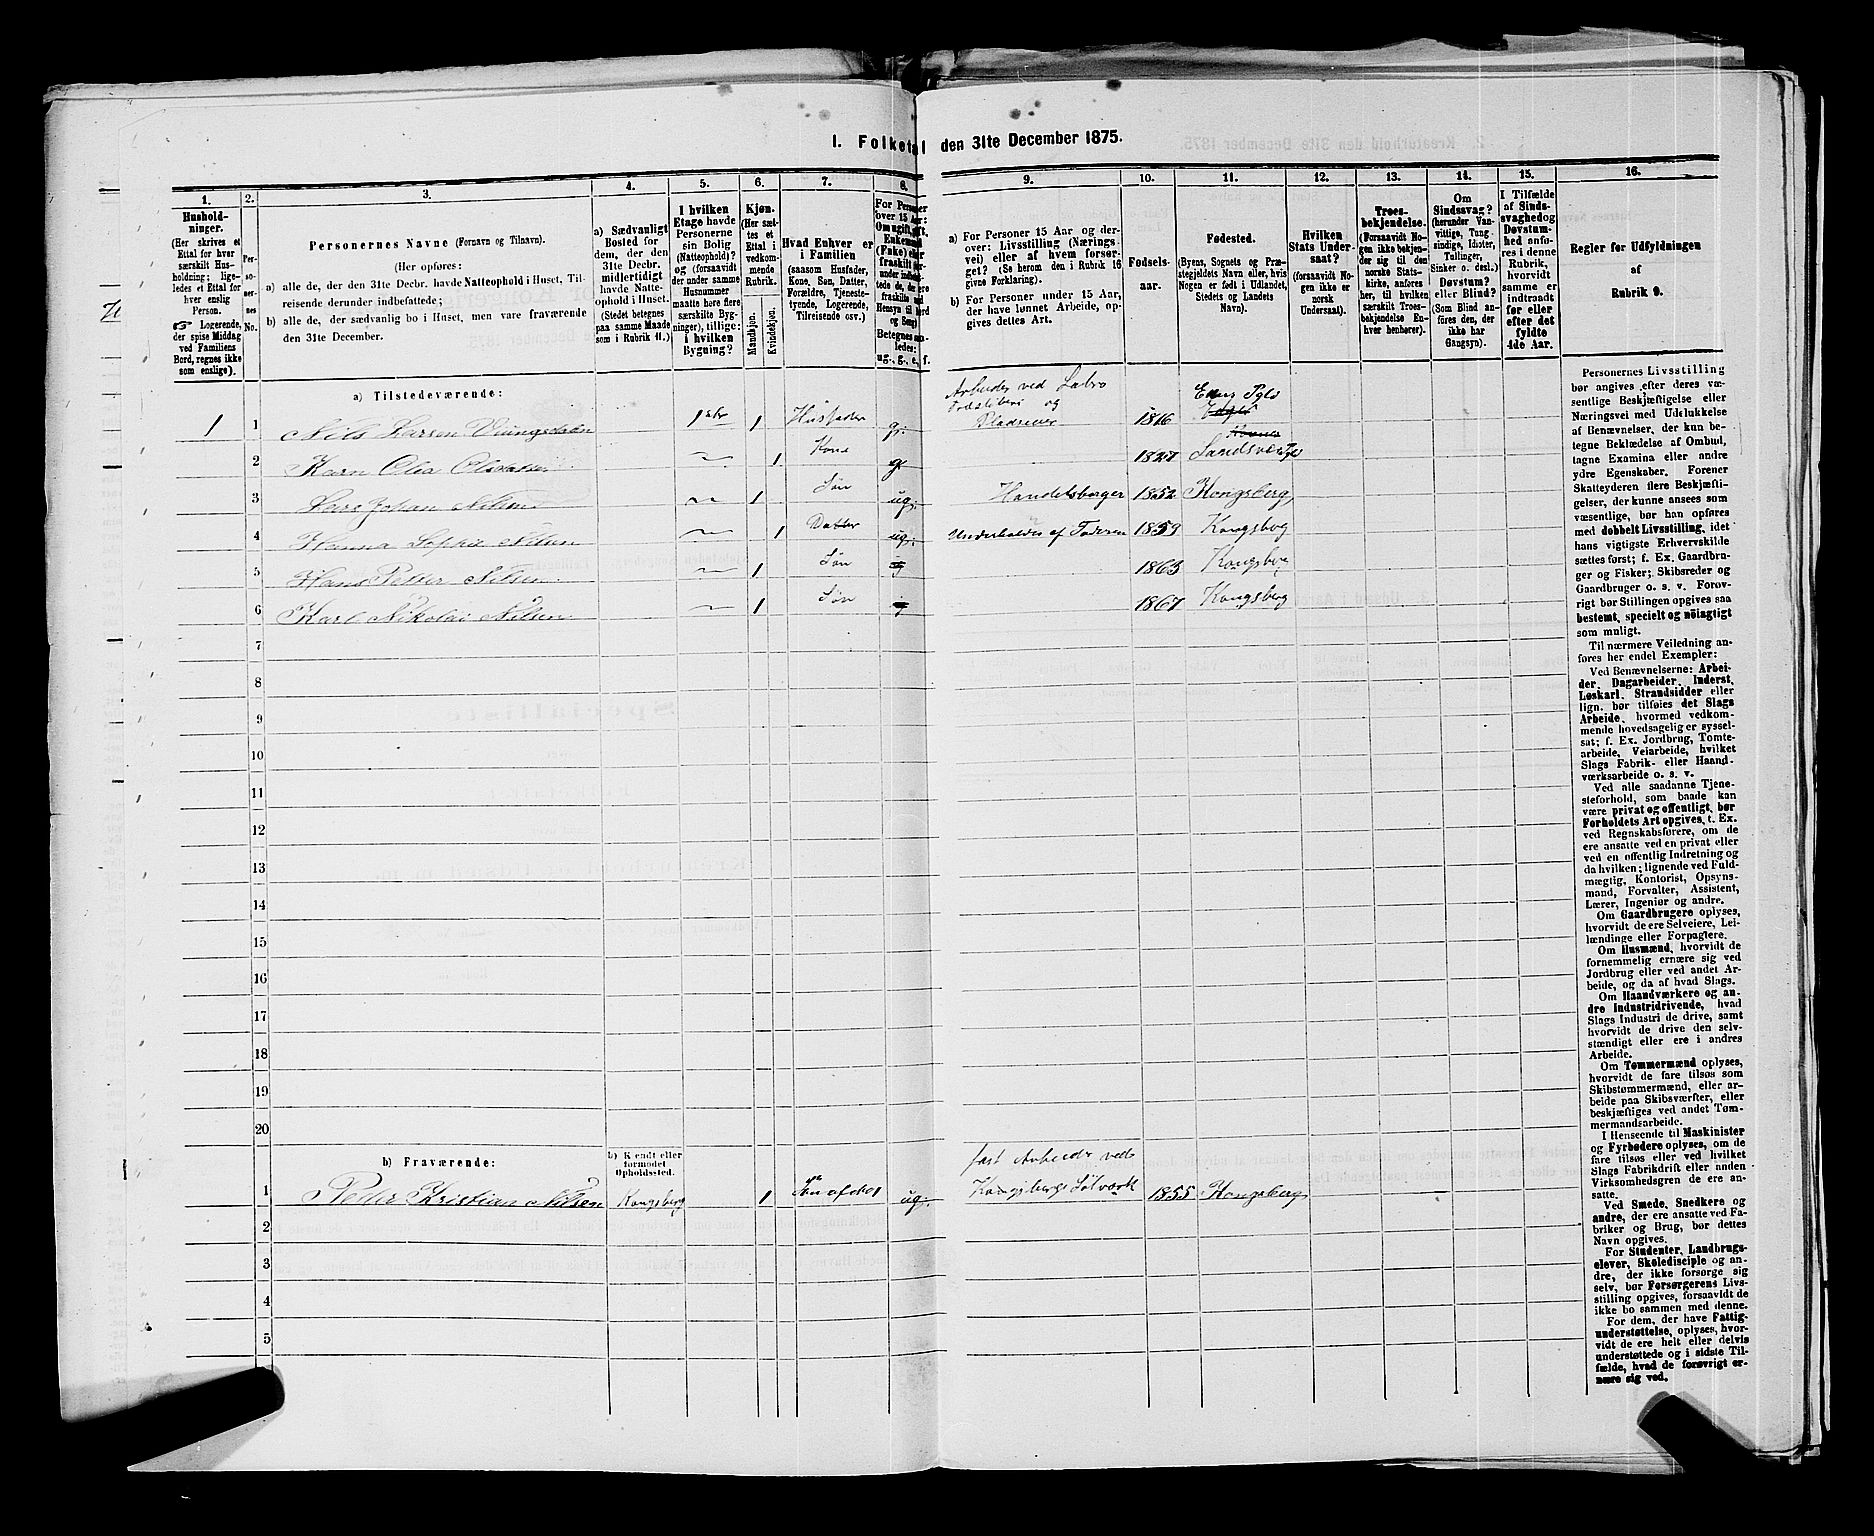 1. Folketal den 31te December 1875.
1. 2. 3. 4. 5. 6. 7. 8. 9. 10. 11. 12. 13. 14. 15. 16.
Hushold-
ninger.
(Her skrives et
Ettal for hver
særskilt Hus-
holdning; lige-
ledes et Ettal for
hver enslig
Person.
☞ Logerende,
der spise Middag
ved Familiens
Bord, regnes ikke
som enslige).
Per-
so-
ner-
nes
No.
Personernes Navne (Fornavn og Tilnavn).
(Her opføres:
a) alle de, der den 31te Decbr. havde Natteophold i Huset, Til-
reisende derunder indbefattede;
b) alle de, der sædvanlig bo i Huset, men vare fraværende
den 31te December.
a) Sædvanligt
Bosted for
dem, der den
31te Decbr.
midlertidigt
havde Natte-
ophold i Huset.
(Stedet betegnes
paa samme Maade
som i Rubrik 11.)
I hvilken
Etage havde
Personerne
sin Bolig
(Natteophold)?
og (forsaavidt
der under samme
Husnummer
maatte høre flere
særskilte Byg-
ninger), tillige:
i hvilken
Bygning?
Kjøn.
(Her sæt-
tes et
Ettal i
vedkom-
mende
Rubrik.
Mandkjøn.
Kvindekjøn.
Hvad Enhver er
i Familien
(saasom Husfader,
Kone, Søn, Datter,
Forældre, Tjeneste-
tyende, Logerende,
Tilreisende osv.)
For Personer
over 15 Aar:
Om ugift, gift,
Enkemand
(Enke) eller
fraskilt
Betegnes saa-
ledes:
ug., g., e., f.
a) For Personer 15 Aar og der-
over: Livsstilling (Nærings-
vei) eller af hvem forsør-
get? (Se herom den i Rubrik 16
givne Forklaring).
b) For Personer under 15 Aar,
der have lønnet Arbeide, op-
gives dettes Art.
Fødsels-
aar.
Fødested.
(Byens, Sognets og Præ-
stegjeldets Navn eller, hvis
Nogen er født i Udlandet,
Stedets og Landets
Navn).
Hvilken
Stats Under-
saat?
(forsaavidt No-
gen ikke er
norsk
Undersaat).
Troes-
bekjendelse.
(Forsaavidt No-
gen ikke bekjen-
der sig til den
norske Stats-
kirke, anføres
her, til hvilken
særskilt Troes-
bekjendelse En-
hver henhører).
Om
Sindssvag?
(herunder Van-
vittige, Tung-
sindige, Idioter,
Tullinger,
Sinker o. desl.)
Døvstum?
eller Blind?
(Som Blind an-
føres den, der
ikke har
Gangsyn).
I Tilfælde
af Sinds-
svaghed og
Døvstum-
hed anfø-
res i denne
Rubrik,
hvorvidt
samme er
indtraadt
før eller
efter det
fyldte
4de Aar.
Regler for Udfyldningen
af
Rubrik 9.
a) Tilstedeværende:
1 1 Nils Larsen 1 Husfader g. Arbeider ved Labro Træsliberi og 1816
2 Karn Olea 1 Kone g. 1827 Sandsvær
3 Lars Johan Nilsen 1 Søn ug. Handelsborger 1852 Kongsberg
4 Hanna Sophie Nilsen 1 Datter ug. Underholdes af Faderen 1853 Kongsberg
5 Hans Petter Nilsen 1 Søn 1863 Kongsberg
6 Karl Nikolai Nilsen 1 Søn 1867 Kongsberg
7
8
9
10
11
12
13
14
15
16
17
18
19
20
b) Fraværende:
b) Kjendt eller
formodet
Opholdssted.
1 Petter Kristian Nilsen Kongsberg 1 Søn af No 1 ug. fast Arbeider ved Kongsbergs Sølvværk 1855 Kongsberg
2
3
4
5
Personernes Livsstilling
bør angives efter deres væ-
sentlige Beskjæftigelse eller
Næringsvei med Udelukkelse
af Benævnelser, der kun be-
tegne Beklædelse af Ombud,
tagne Examina eller andre
ydre Egenskaber. Forener
Skatteyderen flere Beskjæfti-
gelser, der kunne ansees som
væsentlige, bør han opføres
med dobbelt Livsstilling, idet
hans vigtigste Erhvervskilde
sættes først; f. Ex. Gaardbru-
ger og Fisker; Skibsreder og
Gaardbruger o. s. v. Forøv-
rigt bør Stillingen opgives saa
bestemt, specielt og nøiagtigt
som muligt.
Til nærmere Veiledning an-
føres her endel Exempler:
Ved Benævnelserne: Arbei-
der, Dagarbeider, Inderst,
Løskarl, Strandsidder eller
lign. bør tilføies det Slags
Arbeide, hvormed vedkom-
mende hovedsagelig er syssel-
sat; f. Ex. Jordbrug, Tomte-
arbeide, Veiarbeide, hvilket
Slags Fabrik- eller Haand-
værksarbeide o. s. v.
Ved alle saadanne Tjene-
steforhold, som baade kan
være privat og offentligt, bør
Forholdets Art opgives, t. Ex.
ved Regnskabsførere, om de
ere ansatte ved en privat eller
ved en offentlig Indretning og
da hvilken; lignende ved Fuld-
mægtig, Kontorist, Opsyns-
mand, Forvalter, Assistent,
Lærer, Ingeniør og andre.
Om Gaardbrugere oplyses,
hvorvidt de ere Selveiere, Lei-
lændinge eller Forpagtere.
Om Husmænd, hvorvidt de
fornemmelig ernære sig ved
Jordbrug eller ved andet Ar-
beide, og da af hvad Slags.
Om Haandværkere og an-
dre Industridrivende, hvad
Slags Industri de drive, samt
hvorvidt de drive den selv-
stændigt eller ere i andres
Arbeide.
Om Tømmermænd oplyses,
hvorvidt de fare tilsøs som
Skibstømmermænd, eller ar-
beide paa Skibsværfter, eller
beskjæftiges ved andet Tøm-
mermandsarbeide.
I Henseende til Maskinister
og Fyrbødere oplyses, om de
fare tilsøs eller ved hvilket
Slags Fabrikdrift eller anden
Virksomhedsgren de ere an-
satte.
Ved Smede, Snedkere og
andre, der ere ansatte ved Fa-
briker og Brug, bør dettes
Navn opgives.
For Studenter, Landbrugs-
elever, Skoledisciple og an-
dre, der ikke forsørge sig
selv, bør Forsørgerens Livs-
stilling opgives, forsaavidt de
ikke bo sammen med denne.
For dem, der have Fattig-
understøttelse, oplyses, hvor-
vidt de ere helt eller delvis
understøttede og i sidste Til-
fælde, hvad de forøvrigt er-
nære sig ved.